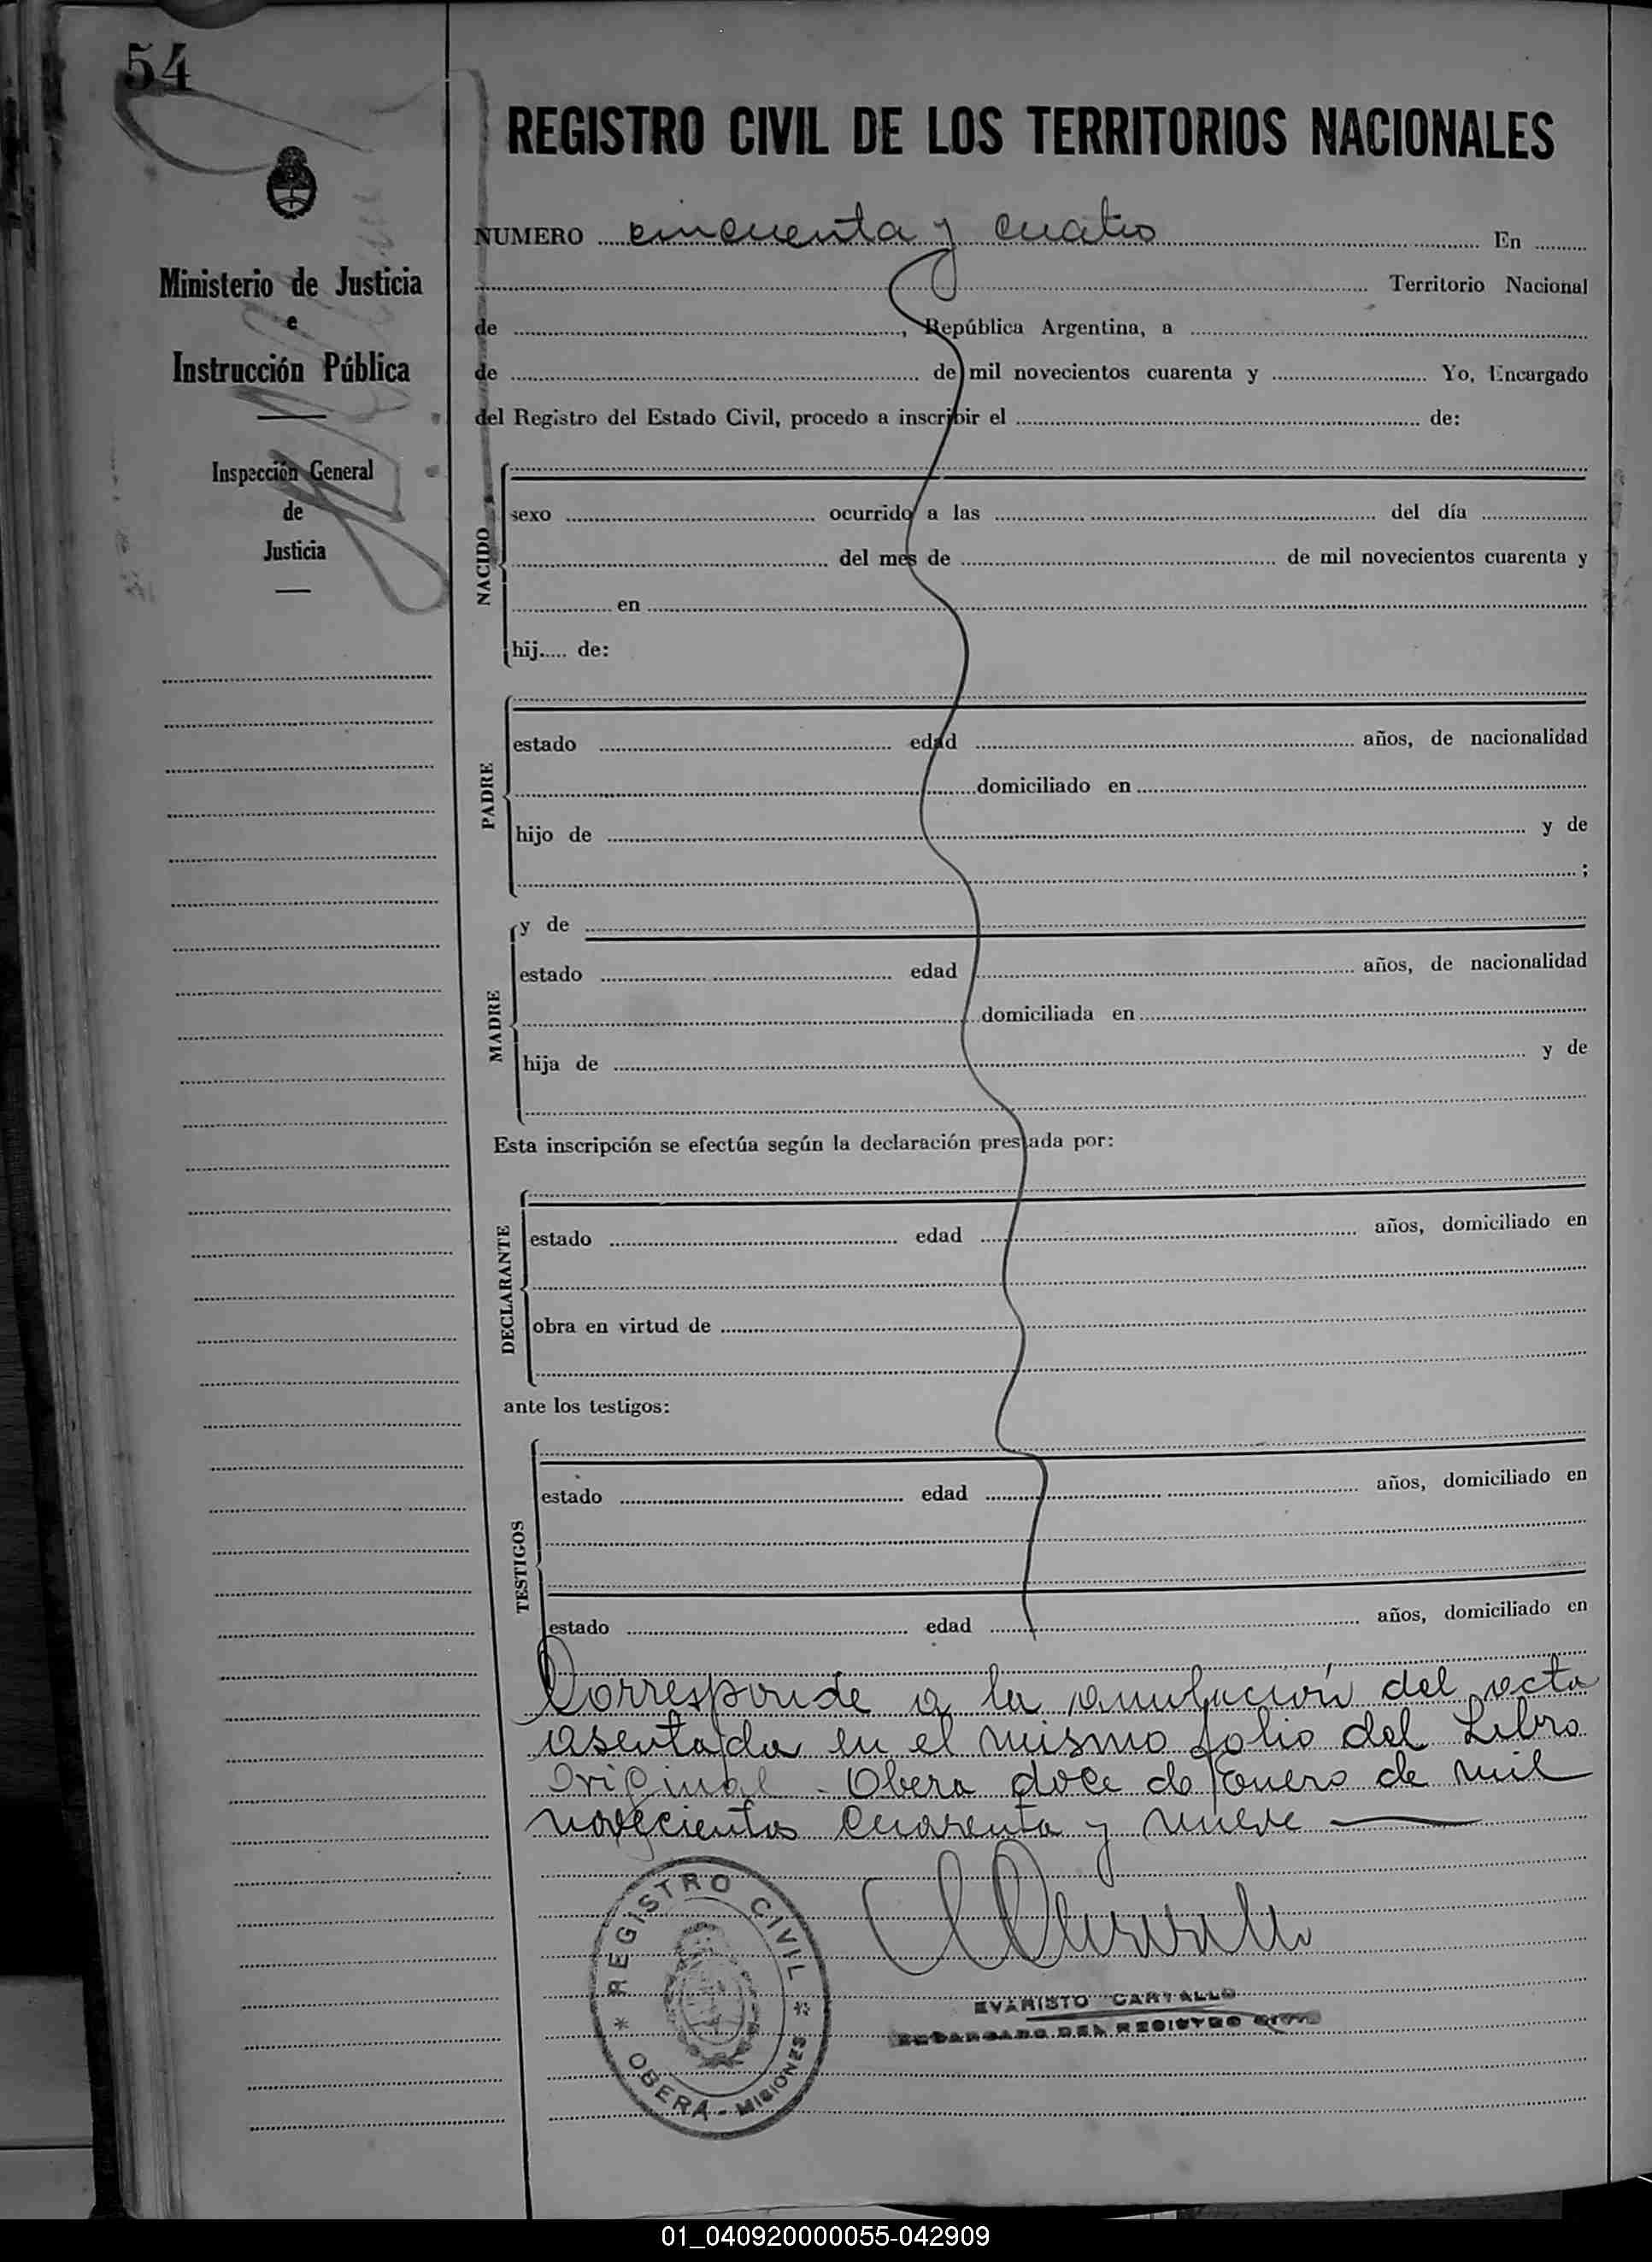 54
Ministerio de Justicia
e
Instrucción Pública
Inspección General
de
Justicia
REGISTRO CIVIL DE LOS TERRITORIOS NACIONALES
NUMERO cincuenta y cuatro En
Territorio Nacional
de , República Argentina, a
de de mil novecientos cuarenta y Yo, Encargado
del Registro del Estado Civil, procedo a inscribir el de:
NACIDO
sexo ocurrido a las del día
del mes de de mil novecientos cuarenta y
en
hij..... de:
PADRE
estado edad años, de nacionalidad
domiciliado en
hijo de y de
;
MADRE
y de
estado edad años, de nacionalidad
domiciliada en
hija de y de
Esta inscripción se efectúa según la declaración prestada por:
DECLARANTE
estado edad años, domiciliado en
obra en virtud de
ante los testigos:
TESTIGOS
estado edad años, domiciliado en
estado edad años, domiciliado en
Corresponde a la anulación del acta
asentada en el mismo folio del Libro
Original - Obera doce de Enero de mil
novecientos cuarenta y nueve
REGISTRO CIVIL
OBERA - MISIONES
EVARISTO CARVALLO
ENCARGADO DEL REGISTRO CIVIL
01_040920000055-042909